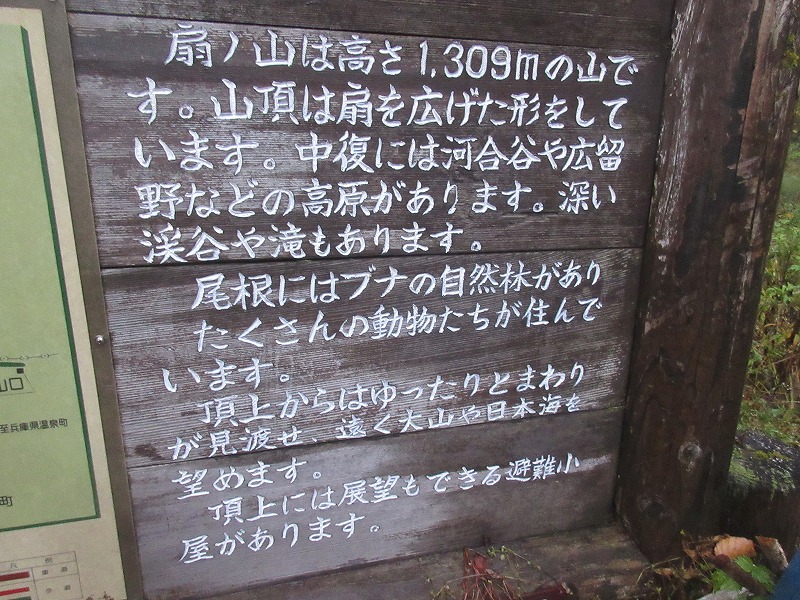 扇ノ山は高さ1,309mの山で
す。山頂は扇を広げた形をして
います。中復には河合谷や広留
野などの高原があります。深い
渓谷や滝もあります。
尾根にはブナの自然林があり
たくさんの動物たちが住んで
います。
頂上からはゆったりとまわり
が見渡せ、遠く大山や日本海を
望めます。
頂上には展望もできる避難小
屋があります。
山口
至兵庫県温泉町
町